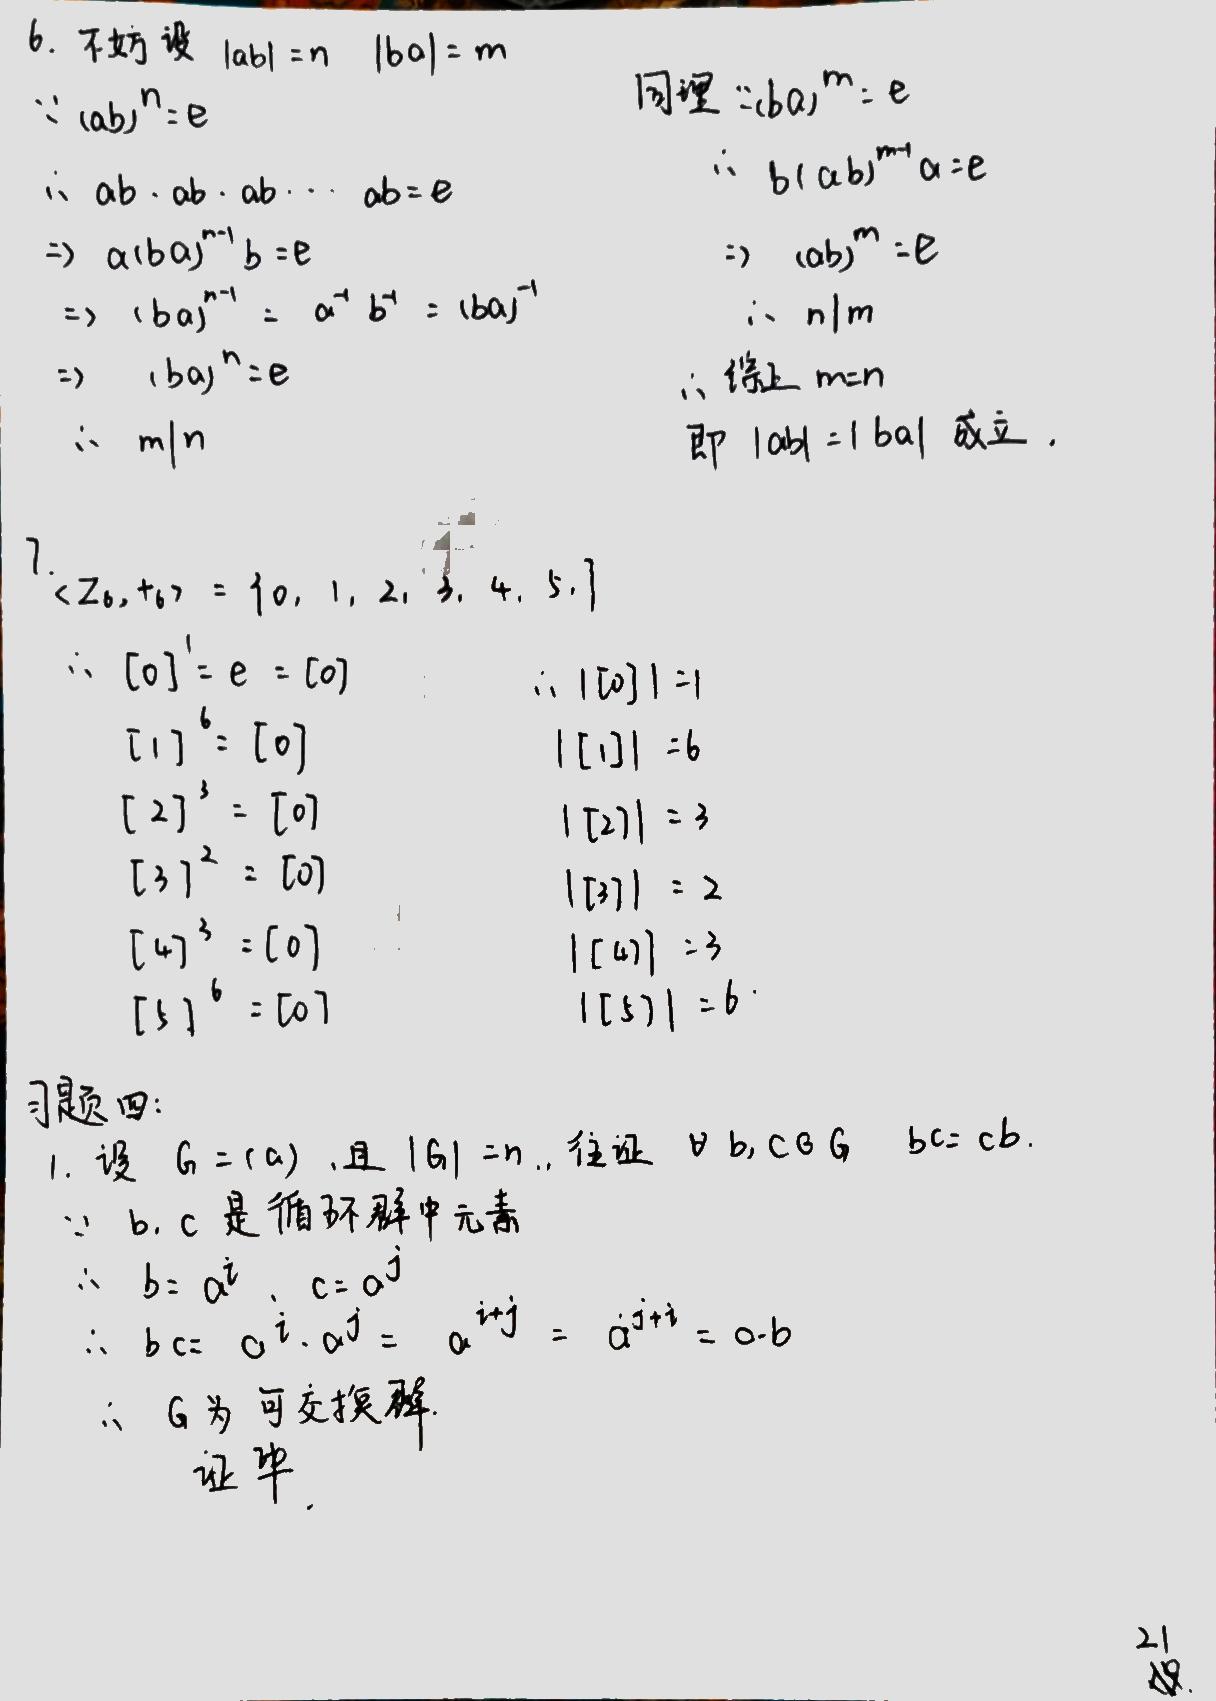 6. 不妨设 |ab|=n |ba|=m
∵ (ab)^n=e
∴ ab·ab·ab··· ab=e
=> a(ba)^{n-1}b=e
=> (ba)^{n-1} = a^{-1} b^{-1} = (ba)^{-1}
=> (ba)^n=e
∴ m|n
同理 ∵(ba)^m=e
∴ b(ab)^{m-1}a=e
=> (ab)^m=e
∴ n|m
∴ 综上 m=n
即 |ab|=|ba| 成立.
7.
<Z_6, +_6> = {0, 1, 2, 3, 4, 5,}
∴ [0]^1=e=[0] ∴ |[0]|=1
[1]^6=[0] |[1]|=6
[2]^3=[0] |[2]|=3
[3]^2=[0] |[3]|=2
[4]^3=[0] |[4]|=3
[5]^6=[0] |[5]|=6.
习题四:
1. 设 G=(a),且 |G|=n., 往证 ∀b,c∈G bc=cb.
∵ b, c 是循环群中元素
∴ b=a^i, c=a^j
∴ bc=a^i·a^j=a^{i+j}=a^{j+i}=a·b
∴ G为可交换群.
证毕.
21